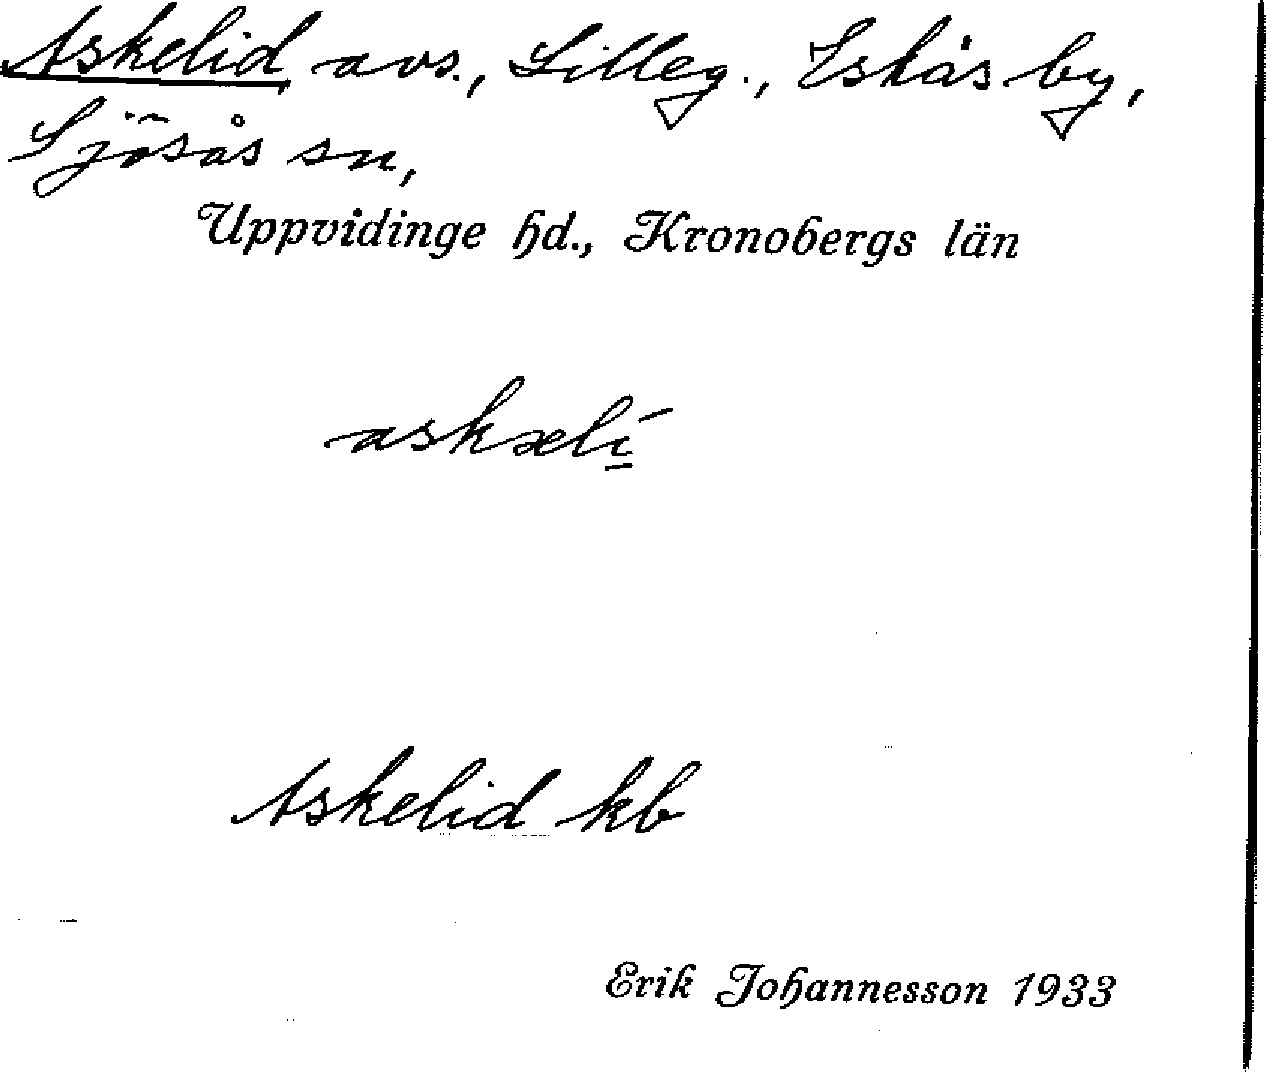 Askelid avs., Lilleg., Eskås by,
Sjösås sn,
Uppvidinge hd., Kronobergs län
askælí
Askelid kb
Erik Johannesson 1933